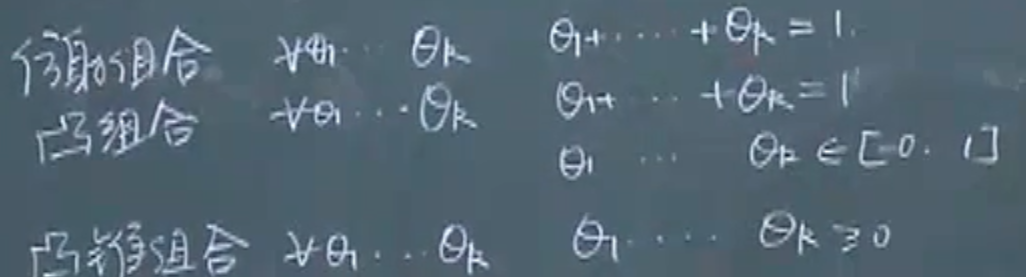 仿射组合 ∀θ₁ ⋯ θₖ θ₁+ ⋯ +θₖ = 1.
凸组合 ∀θ₁ ⋯ θₖ θ₁+ ⋯ +θₖ = 1
θ₁ ⋯ θₖ ∈ [0. 1]
凸锥组合 ∀θ₁ ⋯ θₖ θ₁ ⋯ θₖ ≥ 0